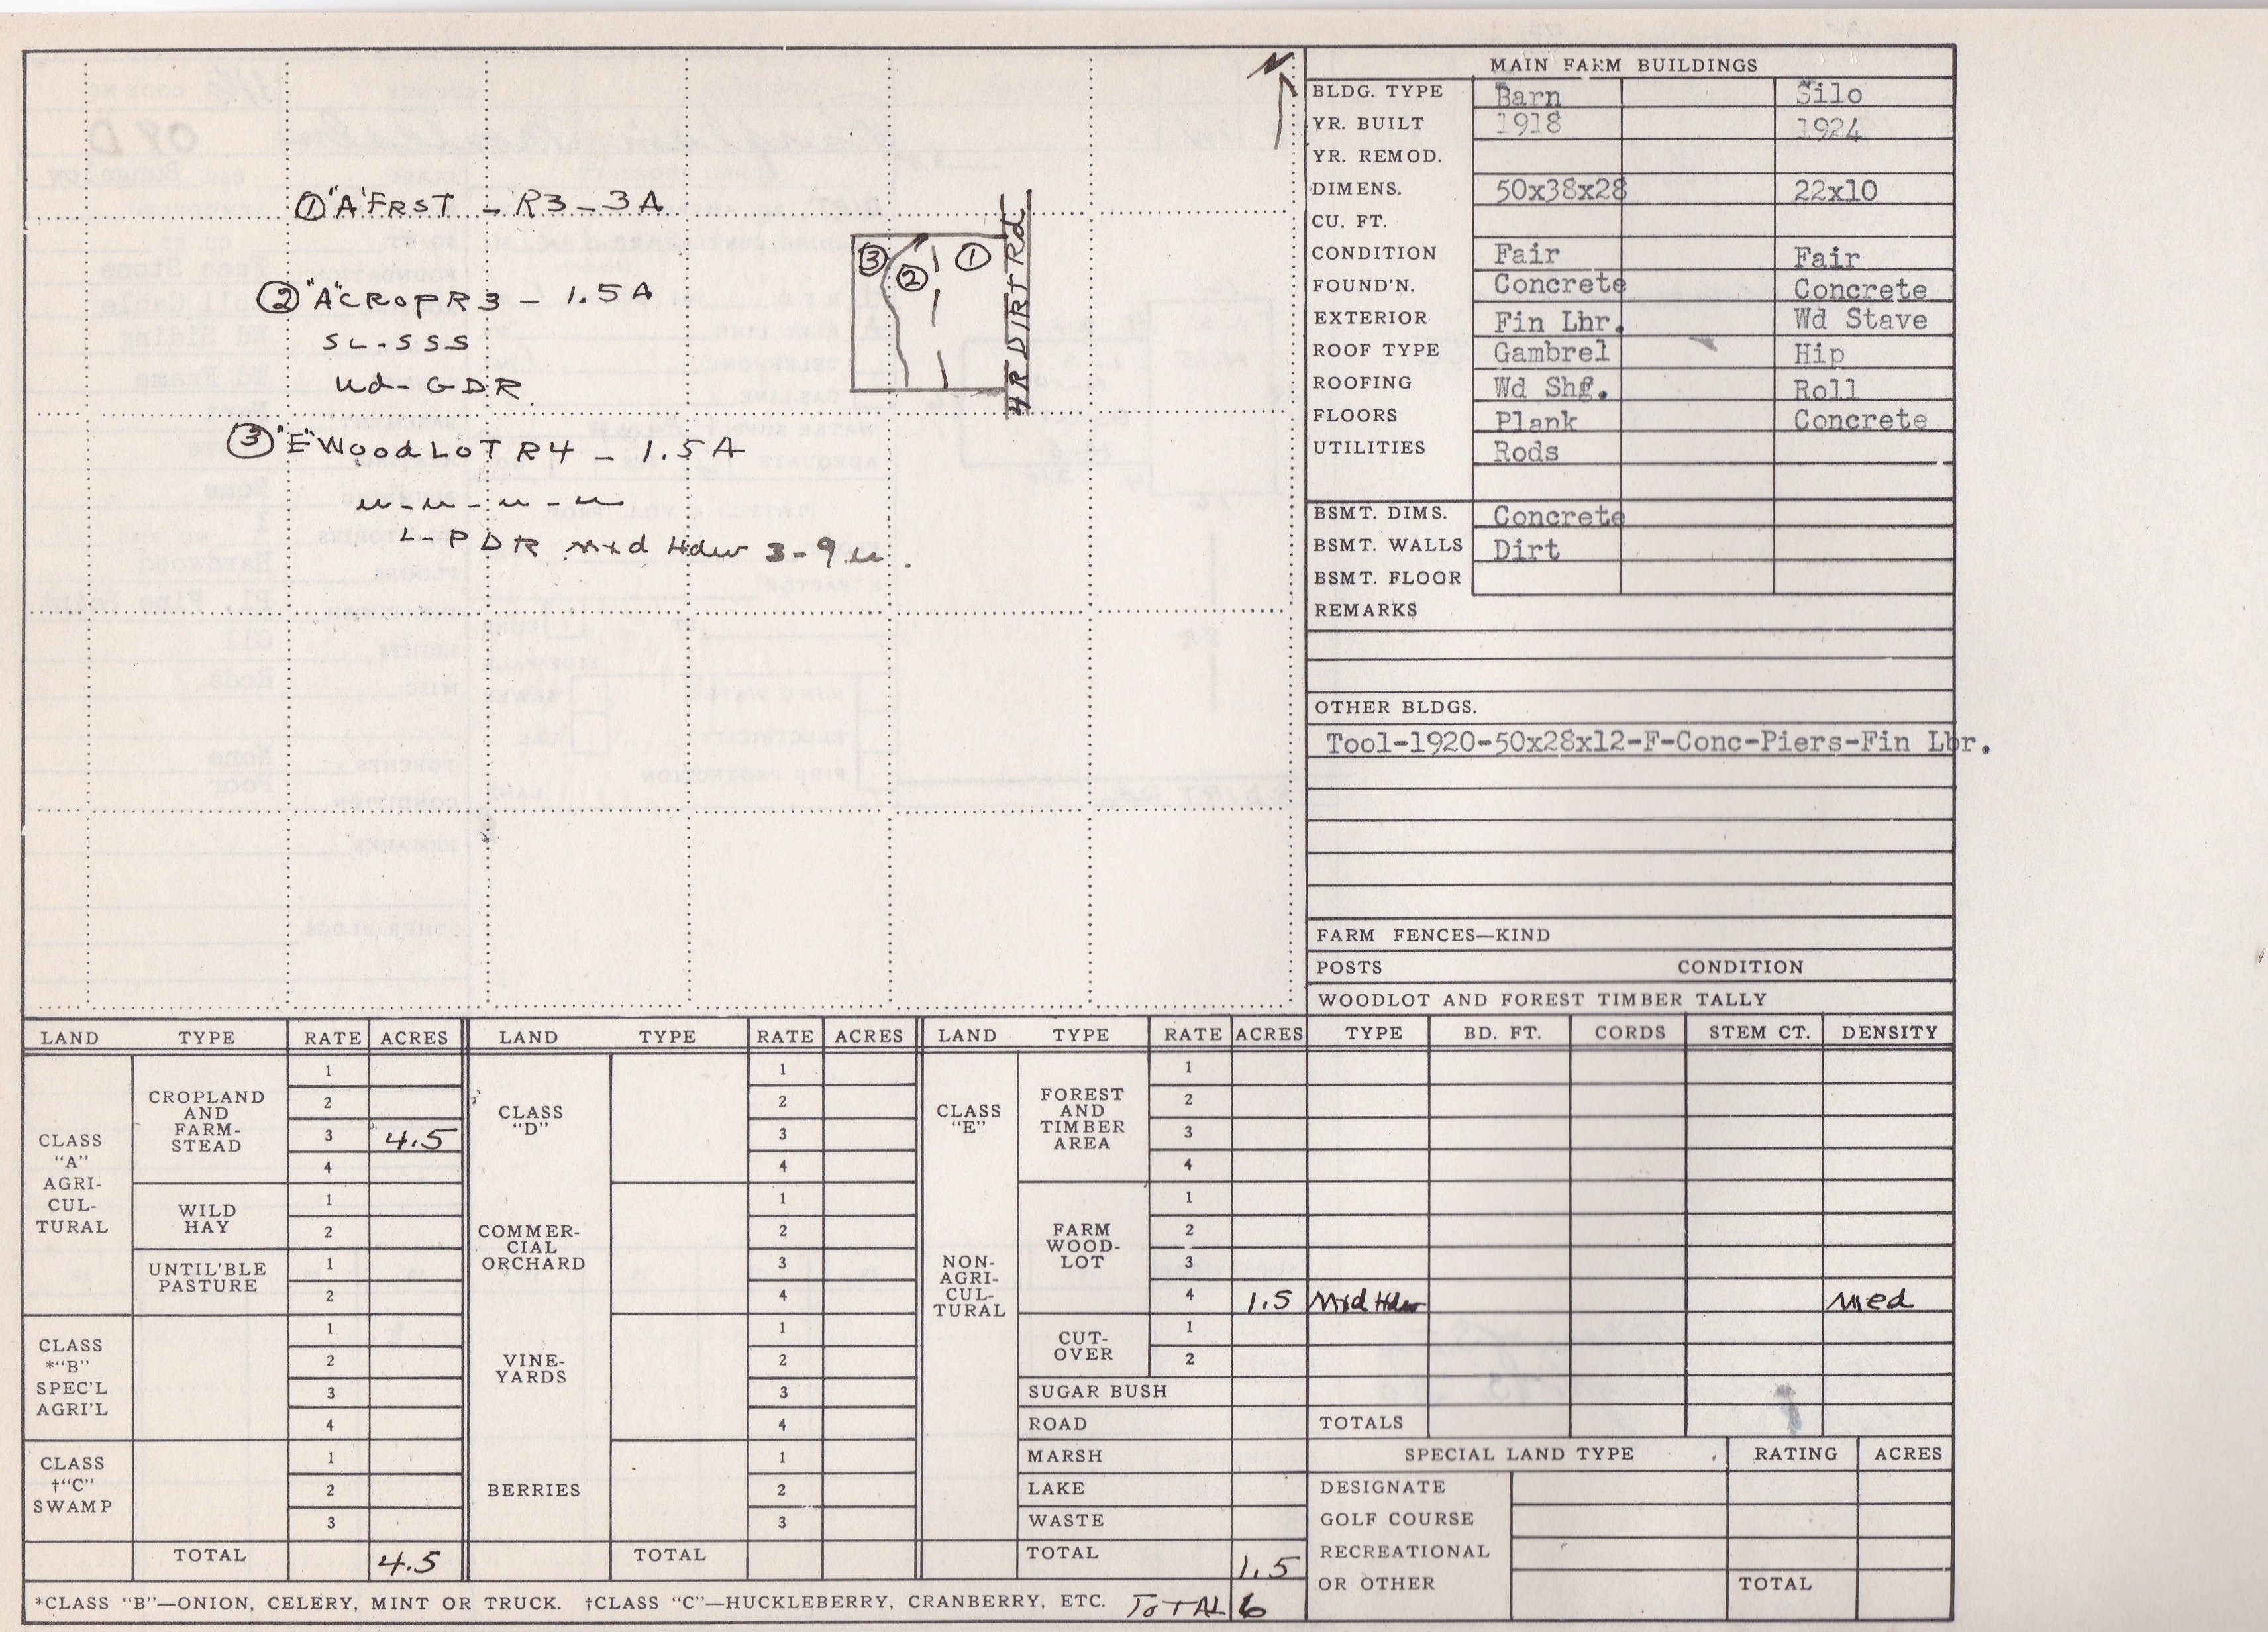 N
① "A" FRST - R3 - 3A
② "A" CROP R3 - 1.5A
SL-SSS
Ud-GDR
③ "E" WoodLOT R4 - 1.5A
u-u-u-u
L-PDR Mxd Hdw 3-9 u.
③ ② ①
4R DIRT Rd
MAIN FARM BUILDINGS
BLDG. TYPE Barn Silo
YR. BUILT 1918 1924
YR. REMOD.
DIMENS. 50x38x28 22x10
CU. FT.
CONDITION Fair Fair
FOUND'N. Concrete Concrete
EXTERIOR Fin Lbr. Wd Stave
ROOF TYPE Gambrel Hip
ROOFING Wd Shg. Roll
FLOORS Plank Concrete
UTILITIES Rods
BSMT. DIMS. Concrete
BSMT. WALLS Dirt
BSMT. FLOOR
REMARKS
OTHER BLDGS.
Tool-1920-50x28x12-F-Conc-Piers-Fin Lbr.
FARM FENCES—KIND
POSTS CONDITION
WOODLOT AND FOREST TIMBER TALLY
TYPE BD. FT. CORDS STEM CT. DENSITY
Mxd Hdw Med
TOTALS
SPECIAL LAND TYPE RATING ACRES
DESIGNATE
GOLF COURSE
RECREATIONAL
OR OTHER TOTAL
LAND TYPE RATE ACRES
CLASS
"A"
AGRI-
CUL-
TURAL
CROPLAND
AND
FARM-
STEAD
1
2
3 4.5
4
WILD
HAY
1
2
UNTIL'BLE
PASTURE
1
2
CLASS
*"B"
SPEC'L
AGRI'L
1
2
3
4
CLASS
†"C"
SWAMP
1
2
3
TOTAL 4.5
LAND TYPE RATE ACRES
CLASS
"D"
1
2
3
4
COMMER-
CIAL
ORCHARD
1
2
3
4
VINE-
YARDS
1
2
3
4
BERRIES
1
2
3
TOTAL
LAND TYPE RATE ACRES
CLASS
"E"
NON-
AGRI-
CUL-
TURAL
FOREST
AND
TIMBER
AREA
1
2
3
4
FARM
WOOD-
LOT
1
2
3
4 1.5
CUT-
OVER
1
2
SUGAR BUSH
ROAD
MARSH
LAKE
WASTE
TOTAL 1.5
*CLASS "B"—ONION, CELERY, MINT OR TRUCK. †CLASS "C"—HUCKLEBERRY, CRANBERRY, ETC. TOTAL 6